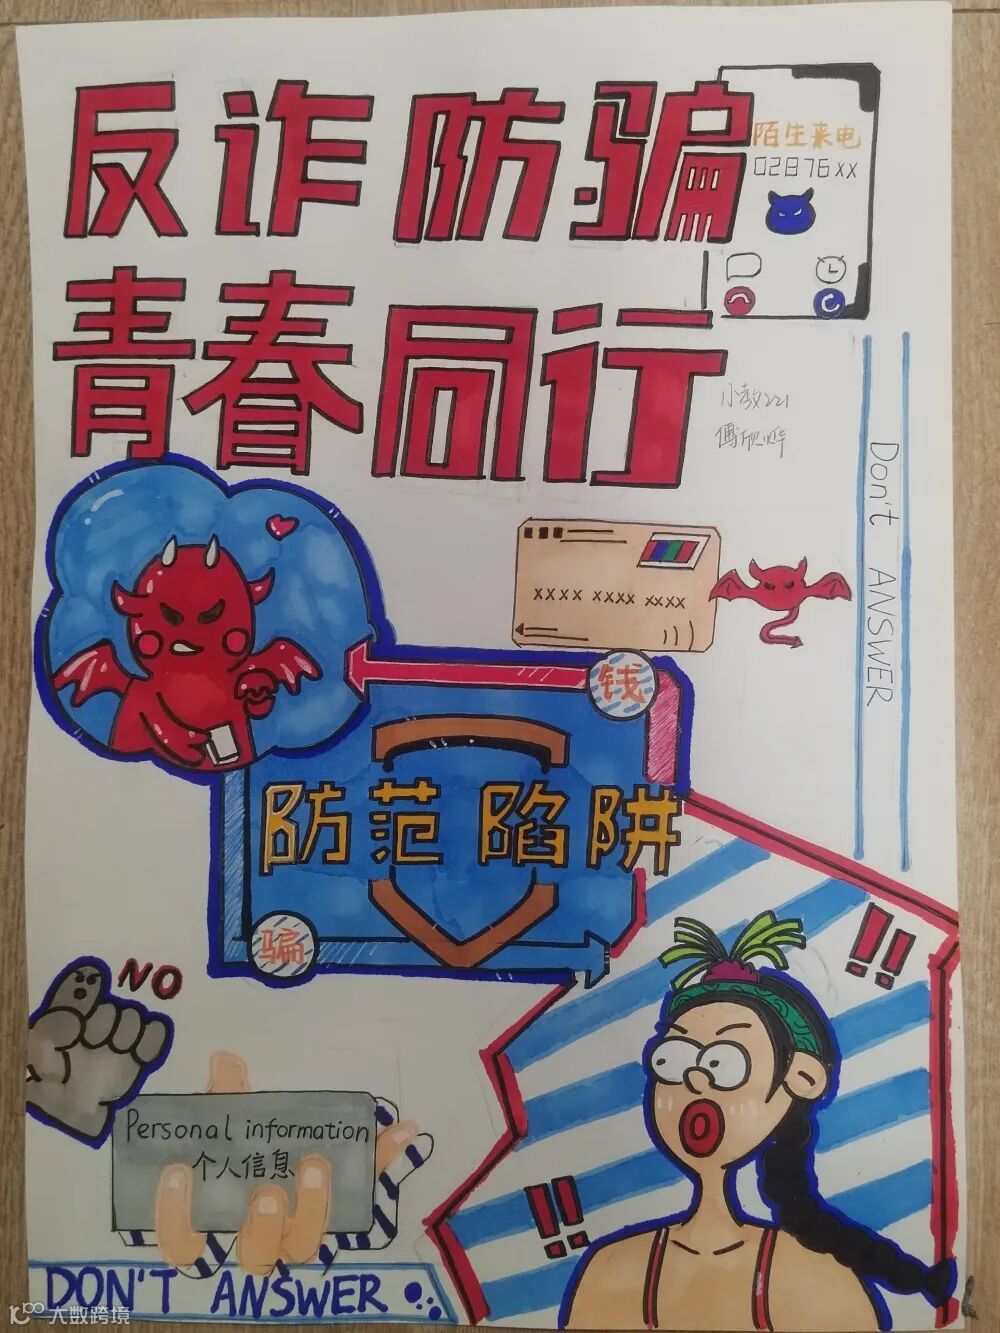 反诈防骗
陌生来电
02876xx
青春同行
小教221
傅欣烨
Don't ANSWER
xxxx xxxx xxxx
钱
防范陷阱
骗
NO
!!
Personal information
个人信息
!!
DON'T ANSWER
大数跨境